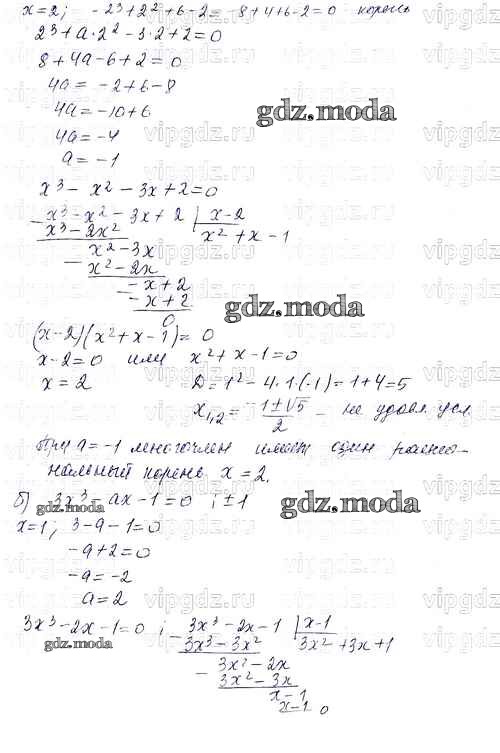 x=2; -2³+2²+6-2=-8+4+6-2=0 корень
2³+a·2²-3·2+2=0
8+4a-6+2=0
4a=-2+6-8
4a=-10+6
4a=-4
a=-1
x³-x²-3x+2=0
x³-x²-3x+2 | x-2
x³-2x² x²+x-1
x²-3x
x²-2x
-x+2
-x+2
0
(x-2)(x²+x-1)=0
x-2=0 или x²+x-1=0
x=2 D=1²-4·1·(-1)=1+4=5
x₁,₂=-1±√5/2 - не удовл. усл.
При a=-1 многочлен имеет один рацио-
нальный корень x=2.
б) 3x³-ax-1=0 ; ±1
x=1; 3-a-1=0
-a+2=0
-a=-2
a=2
3x³-2x-1=0 ; 3x³-2x-1 | x-1
3x³-3x² 3x²+3x+1
3x²-2x
3x²-3x
x-1
x-1
0
gdz.moda
gdz.moda
gdz.moda
gdz.moda
gdz.moda
vipgdz.ru